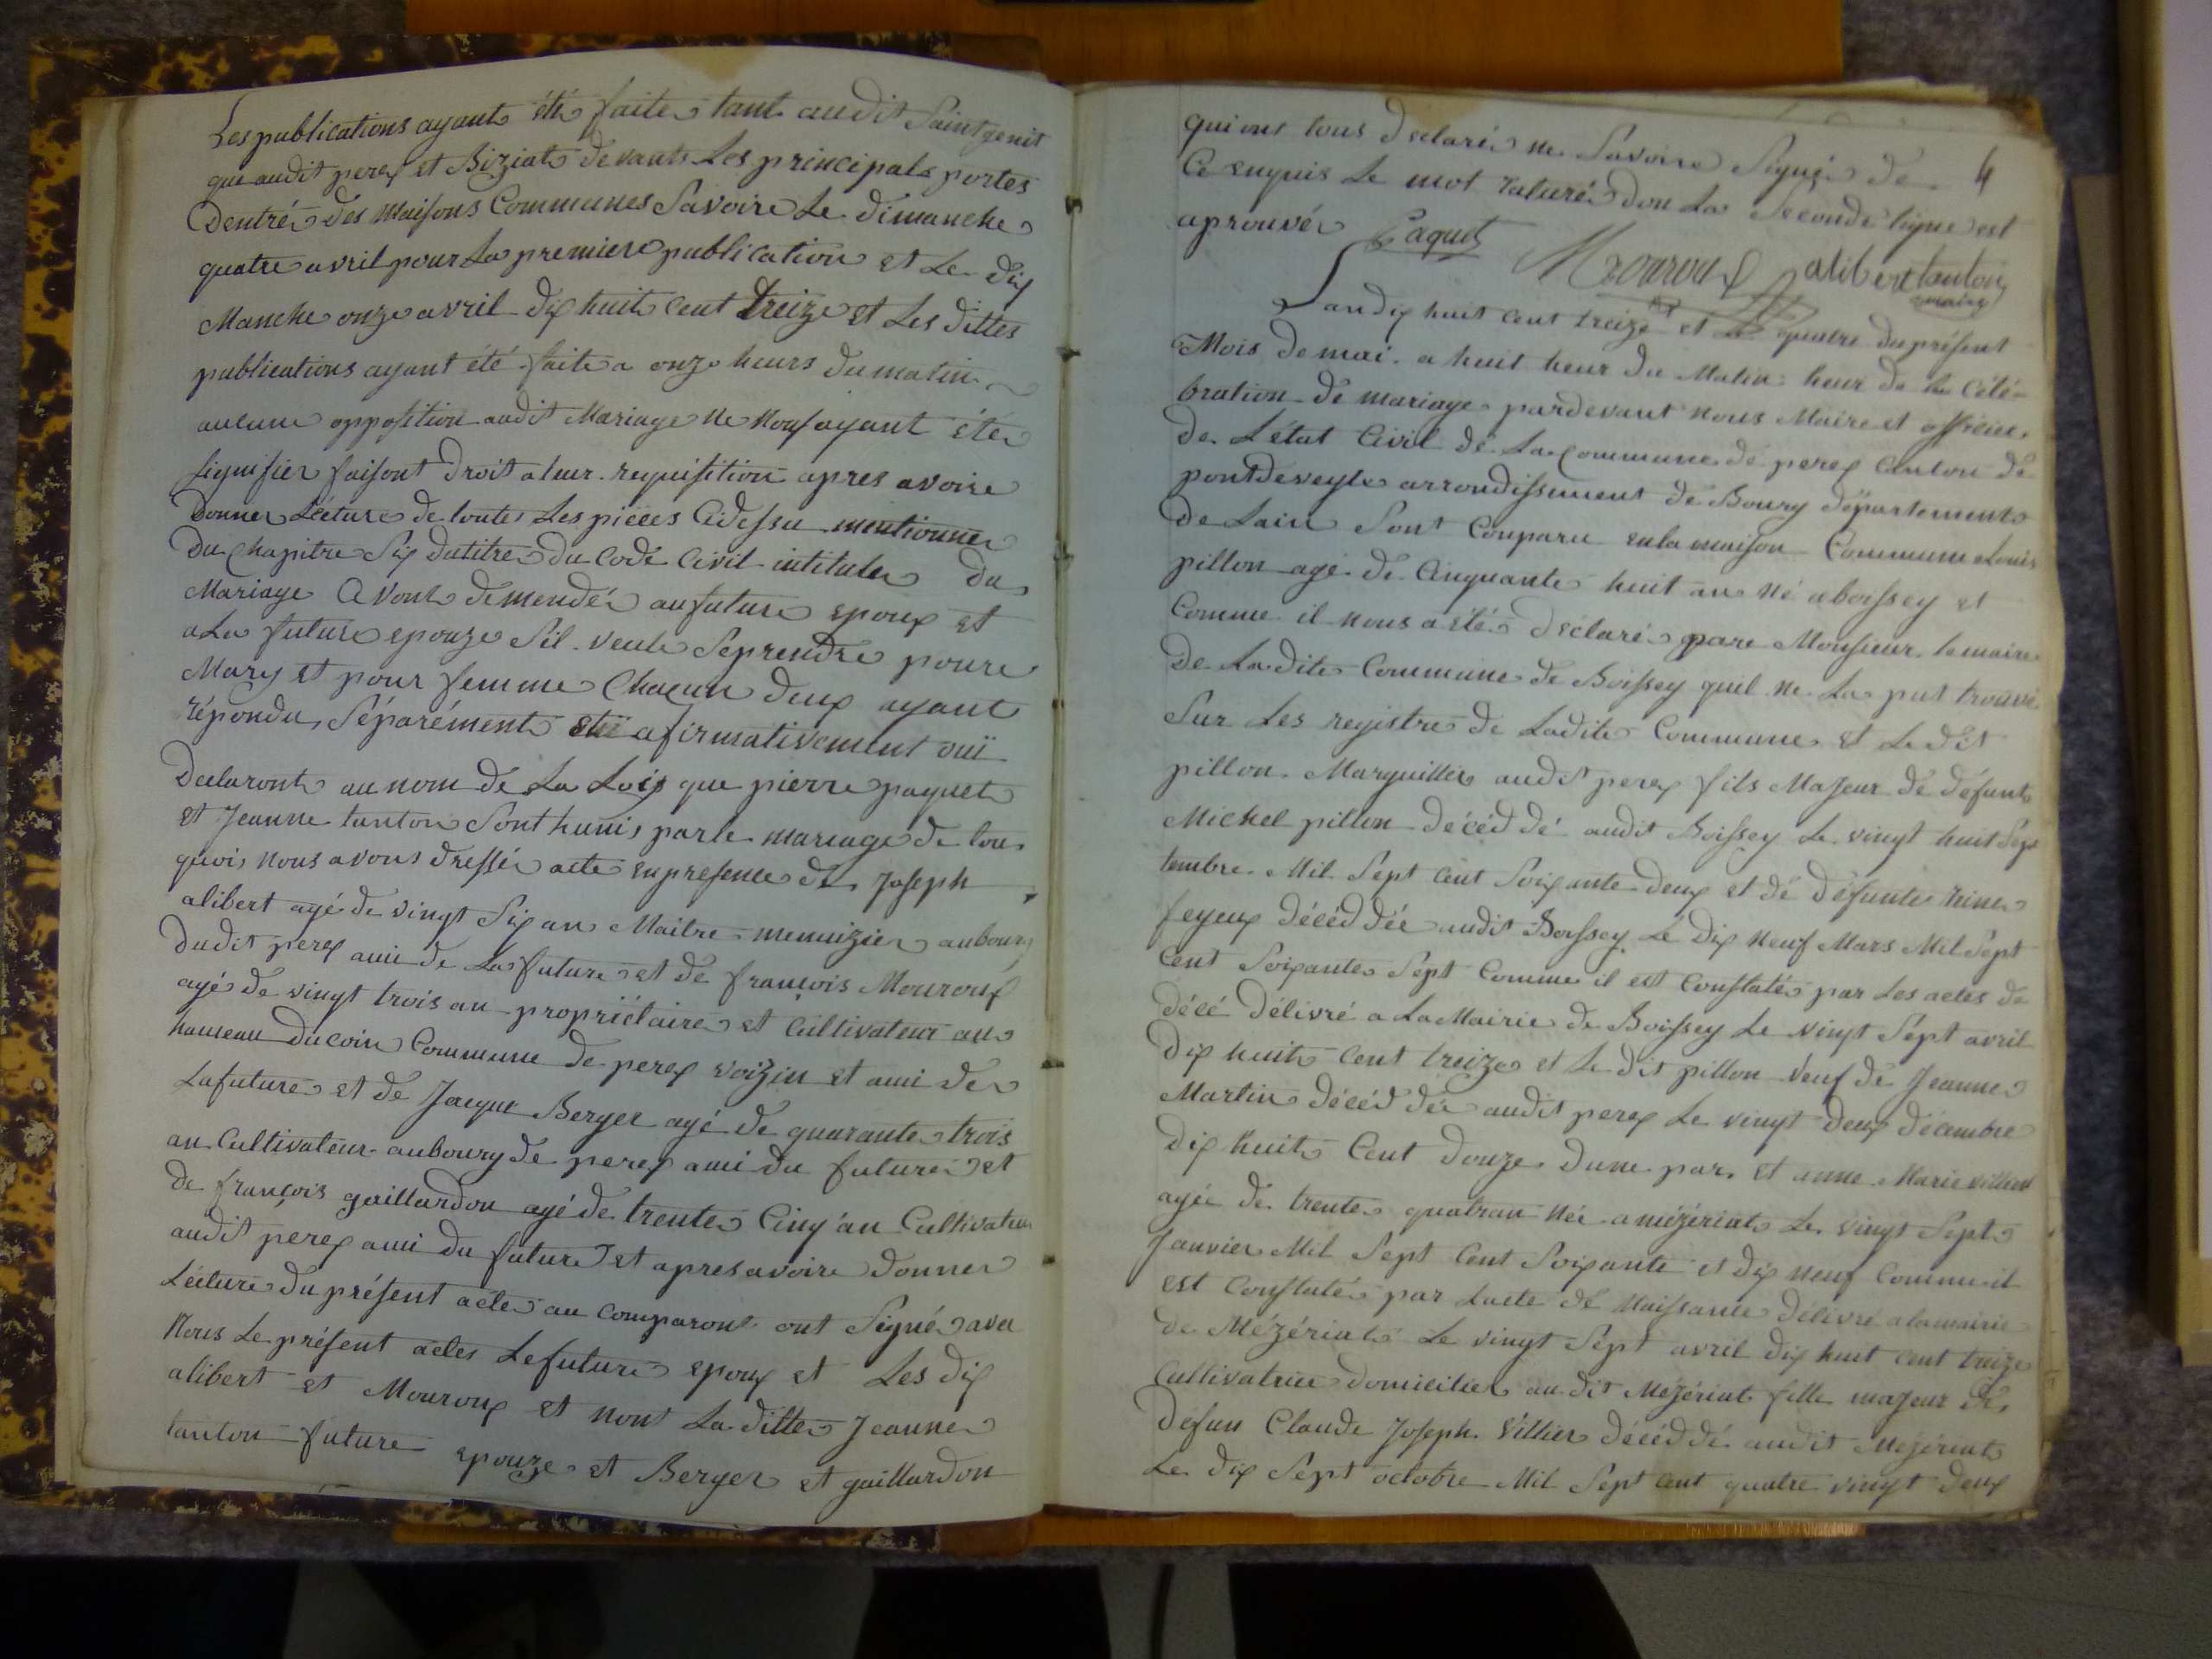 Les publications ayant été faite tant audit Saint genit
que audit perex et Biziat devant Les principale portes
Dentré des maisons Communes Savoire Le dimanche
quatre avril pour La premiere publication et Le dix
Manche onze avril dix huit cent treize et Les dittes
publications ayant été faite a onze heurs du matin
aucune opposition audit Mariage ne nous ayant été
signifier faisont droit a leur requisition apres avoire
donner Lecture de toute Les pièces Cidessu mentionner
Du chapitre Six du titre du Code Civil intituler du
Mariage avont demendér au future epoux et
a La future epouze Sil veule Seprendre poure
Mary et pour femme Chacun deux ayant
répondu Séparément et afirmativement ouï
declaront au nom de La Loix que pierre paquet
et Jeanne tanton Sont hunis par le mariage de tou
quois nous avons dressér acte en presence de Joseph
alibert agé de vingt Six an Maitre menuizier au bourg
dudit perex ami de La future et de françois Mouroux
agé de vingt trois an propriétaire et Cultivateur au
hameau du coin Commune de perex voizin et ami de
La future et de Jacque Berger agé de quarante trois
an Cultivateur au bourg de perex ami du future et
de françois gaillardon agé de trente Cinq an Cultivateur
audit perex ami du future et apres avoire donner
Lecture du présent acte au comparont ont Signé avec
Nous Le présent actes Le future epoux et Les dix
alibert et Mouroux et nont La ditte Jeanne
tanton future epouze et Berger et gaillardon
4
qui ont tous declaré ne Savoire Signé de
Ce enquis Le mot raturé don La Seconde ligne est
aprouvér Paquet
Mouroux alibert tanton
maire
Lan dix huit cent treize et Le quatre du présent
Mois de mai a huit heur du Matin heur de la Célé-
bration de mariage pardevant nous Maire et officier
de L'état Civil de La Commune de perex Canton de
pontdeveyle arrondissement de Bourg département
de Lain Sont Conparu en la maison Commune Louis
pillon agé de Cinquante huit an né a boissey et
Comme il nous a été déclaré pare Monsieur le maire
de La dite Commune de Boissey quil ne La put trouvé
Sur Les registre de Ladite Commune et Le dit
pillon Marguillier audit perex fils Majeur de défunt
Michel pillon décéd dé audit Boissey Le vingt huit Sep
tembre Mil Sept Cent Soixante deux et de défunte
feyeux décéd dée audit Boissey Le dix neuf Mars Mil Sept
Cent Soixante Sept Comme il est Constaté par Les actes de
décé délivré a La Mairie de Boissey Le vingt Sept avril
dix huit Cent treize et Le dit pillon veuf de Jeanne
Martin décéd dée audit perex Le vingt deux décembre
dix huit Cent douze dune par et anne Marie villier
agée de trente quatran née a mézériat Le vingt Sept
Janvier Mil Sept Cent Soixante et dix neuf Comme il
est Constaté par Lacte de Naissance délivré a la mairie
de Mézériat Le vingt Sept avril dix huit cent treize
Cultivatrice domicilier au dit Mézériat fille majeur de
défun Claude Joseph Villier décéd dé audit Mézériat
Le dix Sept octobre Mil Sept cent quatre vingt deux